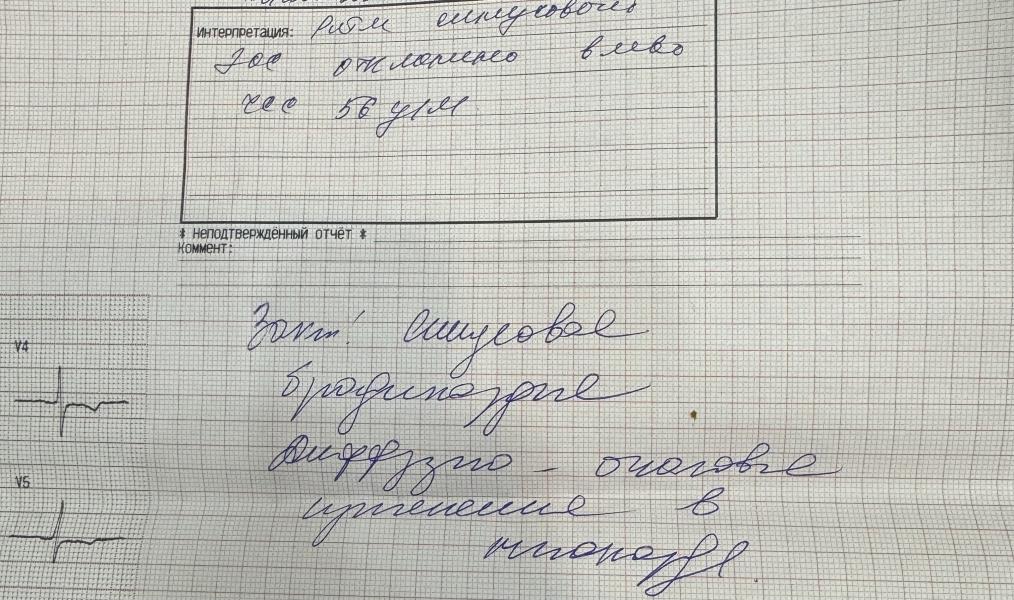 Интерпретация: Ритм синусовый
ЭОС отклонено влево
ЧСС 56 у/м
* Неподтверждённый отчёт *
Коммент:
Закл: синусовая
брадикардия
Диффузно - очаговые
V4
изменения в
V5
миокарде.